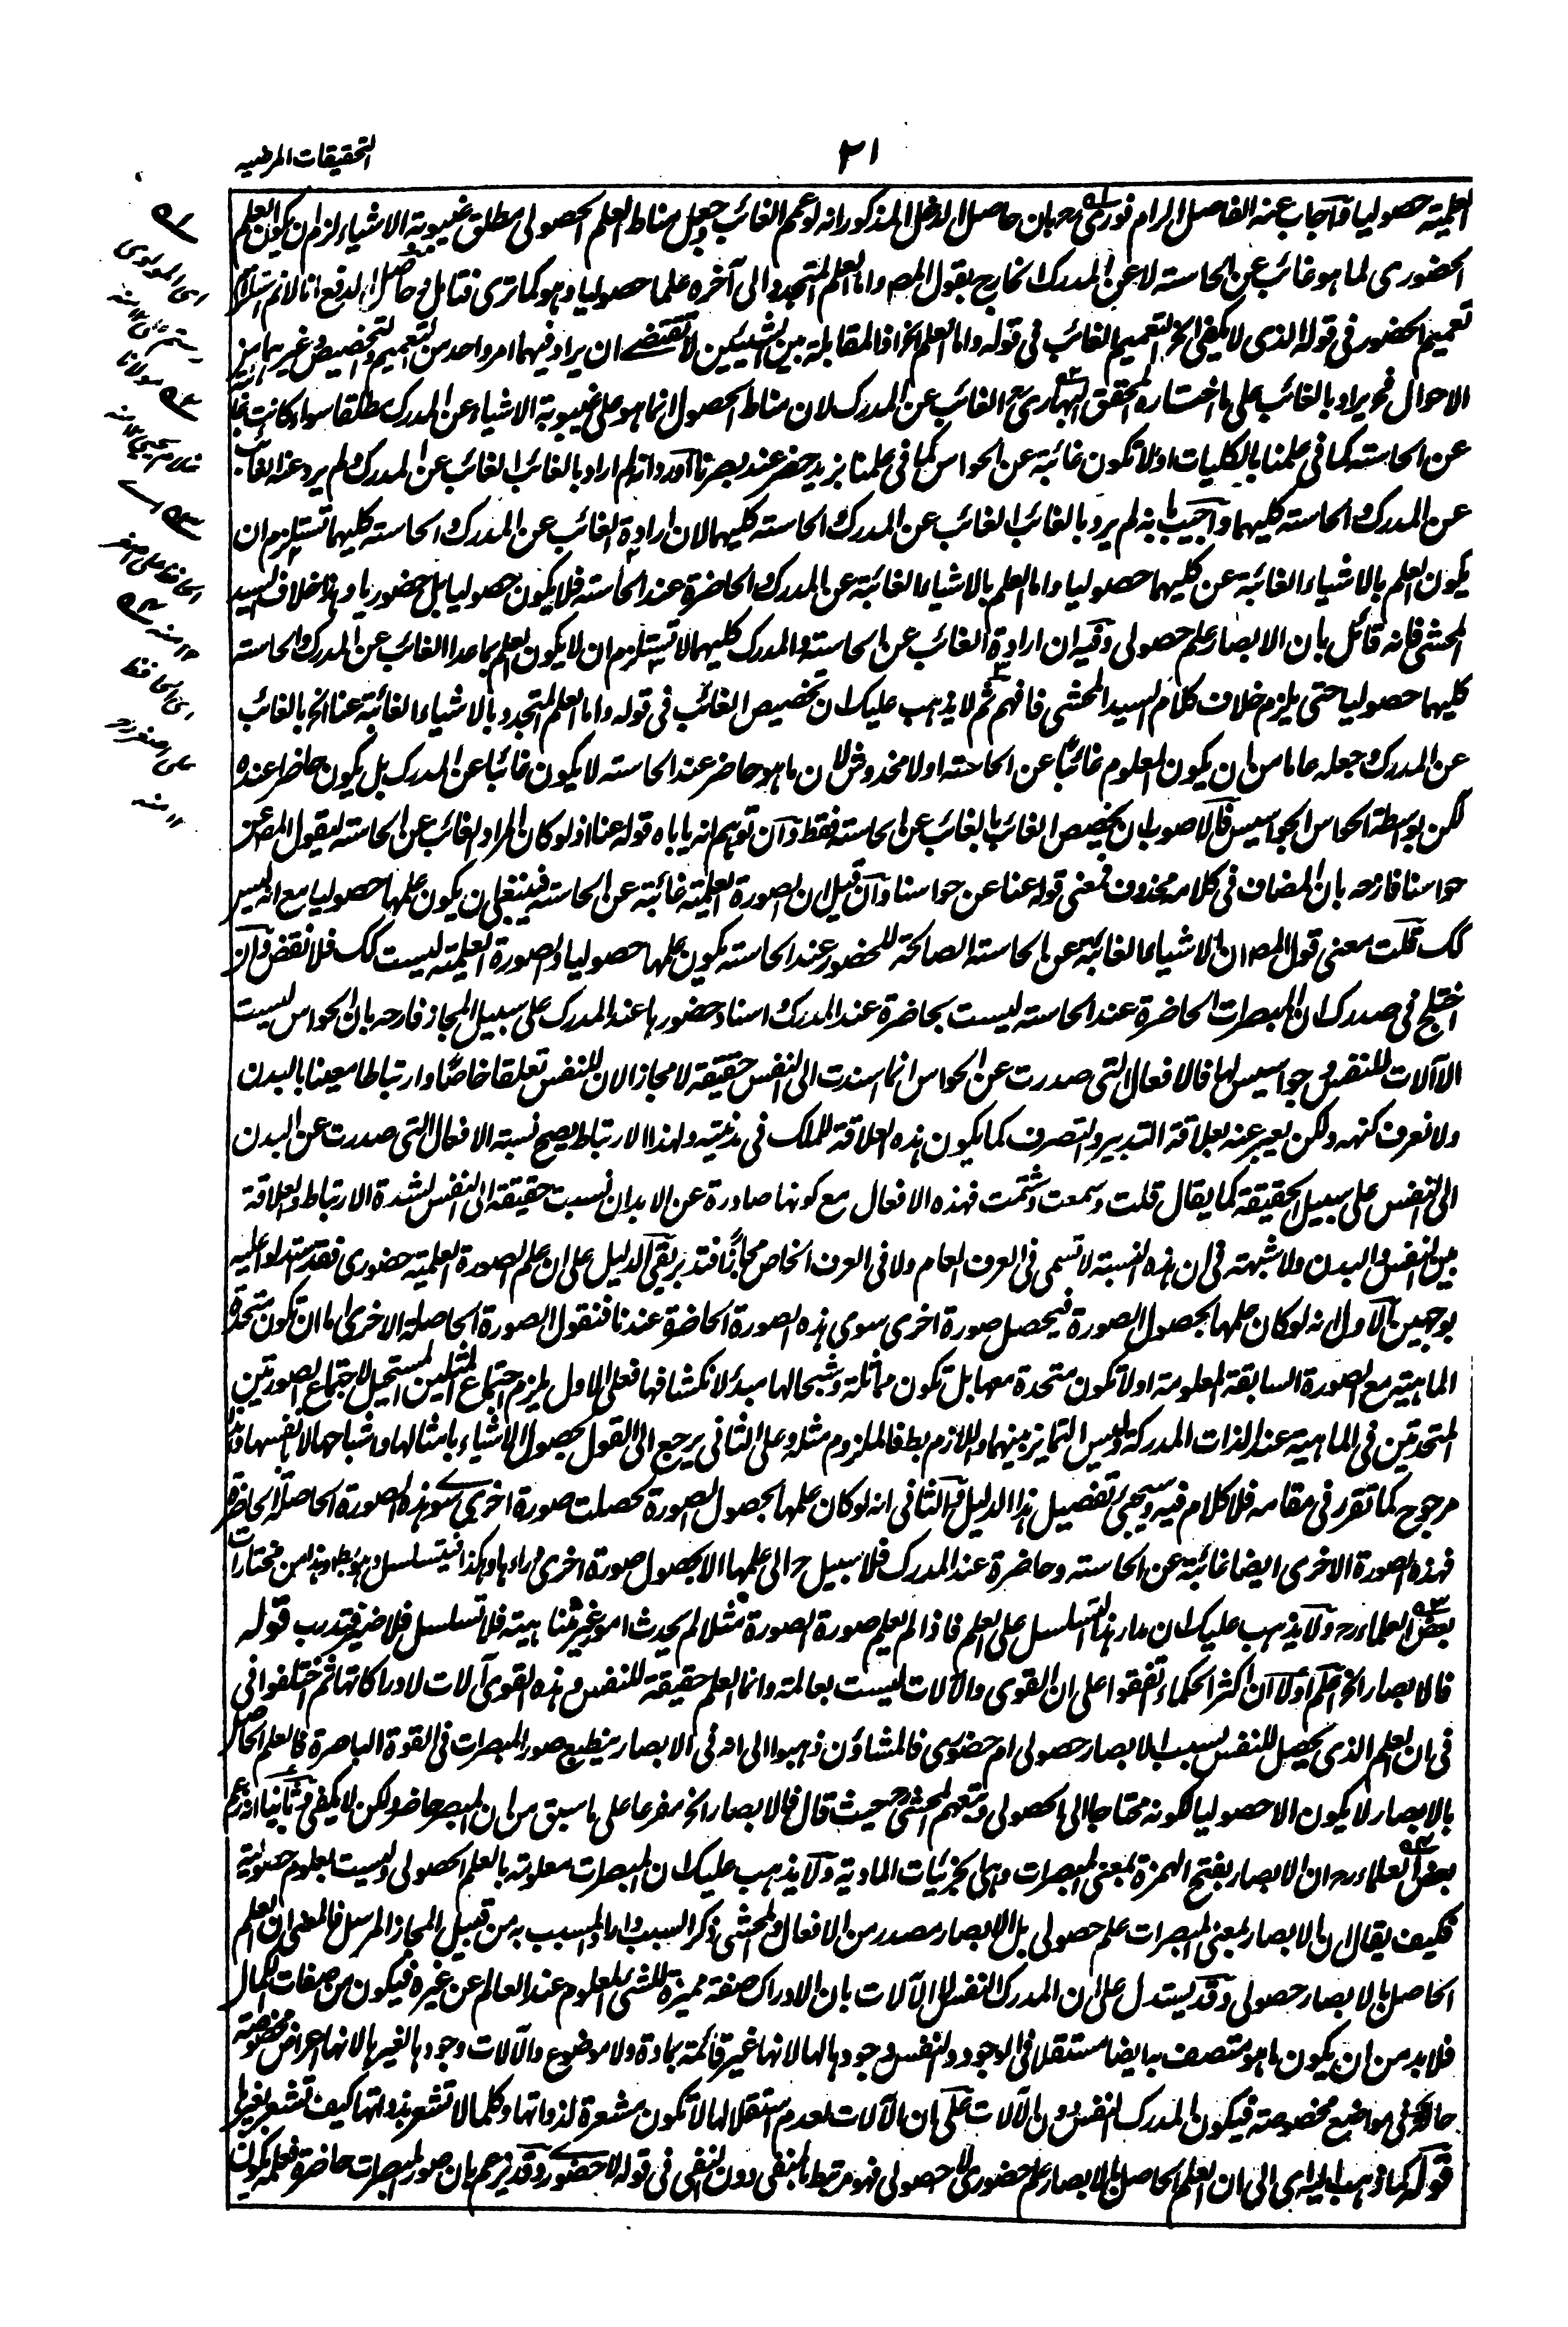 التحقيقات المرضيه
٢١
العلمية حصوليا وآجاب عنه الفاضل الرامفوري رح بان حاصل الدخل المذكور انه لو عمم الغائب وجعل مناط العلم الحصولى مطلق غيبوبة الاشياء لزم ان يكون العلم
الحضورى لما هو غائب عن الحاسته لا عن المدرك الخارج بقول المصـ واما العلم المتجدد الى آخره علما حصوليا وهو كما ترى فتامل وحاصل الدفع انا لا نم استلزام
تعميم الحضور فى قوله الذى لا يكفى الخ لتعميم الغائب فى قوله واما العلم الخ اذ المقابلة بين الشيئين لا تقتضے ان يراد فيهما امر واحد من التعميم والتخصيص وغيرهما من
الاحوال فح يراد بالغائب على ما اختاره المحقق البهارى رح الغائب عن المدرك لان مناط الحصول انما هو على غيبوبة الاشياء عن المدرك مطلقا سواء كانت غائبة
عن الحاسته كما فى علمنا بالكليات اولا تكون غائبة عن الحواس كما فى علمنا بزيد حضر عند بصرنا آورد انه لم اراد بالغائب الغائب عن المدرك ولم يرد عنه الغائب
عن المدرك والحاسته كليهما وآجيب بانه لم يرد بالغائب الغائب عن المدرك والحاسته كليهما لان ارادة الغائب عن المدرك والحاسته كليهما تستلزم ان
يكون العلم بالاشياء الغائبة عن كليهما حصوليا واما العلم بالاشياء الغائبة عن المدرك والحاضرة عند الحاسته فلا يكون حصوليا بل حضوريا وهذا خلاف السيد
المحشى فانه قائل بان الابصار علم حصولى وفيه ان ارادة الغائب عن الحاسته والمدرك كليهما لا تستلزم ان لا يكون العلم بما عدا الغائب عن المدرك والحاسته
كليهما حصوليا حتى يلزم خلاف كلام السيد المحشى فافهم ثم لا يذهب عليك ان تخصيص الغائب فى قوله واما العلم المتجدد بالاشياء الغائبة عنا الخ بالغائب
عن المدرك وجعله عاما من ان يكون المعلوم غائبا عن الحاسته اولا مخدوش لان ما هو حاضر عند الحاسته لا يكون غائبا عن المدرك بل يكون حاضرا عنده
لكن بوسطة الحواس الجواسيس فآلاصوب ان يخصص الغائب بالغائب عن الحاسته فقط وآن توهم انه ياباه قوله عنا اذ لو كان المراد الغائب عن الحاسته ليقول المصـ عن
حواسنا فازحه بان المضاف فى كلامه محذوف فمعنى قوله عنا عن حواسنا وآن قيل ان الصورة العلمية غائبة عن الحاسته فينبغى ان يكون علمها حصوليا مع انه ليس
كك قلت معنى قول المصـ ان الاشياء الغائبة عن الحاسته الصالحة للحضور عند الحاسته يكون علمها حصوليا والصورة العلمية ليست كك فلا نقض وآن
اختلج فى صدرك ان المبصرات الحاضرة عند الحاسته ليست بحاضرة عند المدرك واسناد حضورها عند المدرك على سبيل المجاز فازحه بان الحواس ليست
الا آلات للنفس وجواسيس لها فالافعال التى صدرت عن الحواس انما اسندت الى النفس حقيقة لا مجازا لان للنفس تعلقا خاصا وارتباطا معينا بالبدن
ولا نعرف كنهه ولكن يعبر عنه بعلاقة التدبير والتصرف كما يكون هذه العلاقة للملك فى مدينته ولهذا الارتباط يصح نسبة الافعال التى صدرت عن البدن
الى النفس على سبيل الحقيقة كما يقال قلت وسمعت وشممت فهذه الافعال مع كونها صادرة عن الابدان نسبت حقيقة الى النفس لشدة الارتباط والعلاقة
بين النفس والبدن ولا شبهته فى ان هذه النسبة لا تسمى فى العرف العام ولا فى العرف الخاص مجازا فتدبر بقى الدليل على ان علم الصورة العلمية حضورى فقد استدلوا عليه
بوجهين الآول انه لو كان علمها بحصول الصورة فيحصل صورة اخرى سوى هذه الصورة الحاضرة عندنا فنقول الصورة الحاصلة الاخرى اما ان تكون متحدة
الماهيته مع الصورة السابقة المعلومة اولا تكون متحدة معها بل تكون مماثلة وشبحا لها مبدء لانكشافها فعلى الاول يلزم اجتماع المثلين المستحيل لاجتماع الصورتين
المتحدتين فى الماهيته عند الذات المدركة وليس التمايز بينهما واللازم بط فالملزوم مثله وعلى الثانى يرجع الى القول بحصول الاشياء بامثالها واشباحها لا بانفسها وهذا
مرجوح كما تقرر فى مقامه فلا كلام فيه وسيجئ تفصيل هذا الدليل والثانى انه لو كان علمها بحصول الصورة لحصلت صورة اخرى سوے هذه الصورة الحاصلة الحاضرة
فهذه الصورة الاخرى ايضا غائبة عن الحاسته وحاضرة عند المدرك فلا سبيل ح الى علمها الا بحصول صورة اخرى وراءها وهكذا فيتسلسل وهو بط وهذا من مختارات
بعض العلماء رح ولا يذهب عليك ان مدار هذا التسلسل على العلم فاذا لم يعلم صورة الصورة مثلا لم يحدث امور غير متناهية فلا تسلسل فلا ضير فتدرب قوله
فالابصار الخ اعلم اولا ان اكثر الحكماء اتفقوا على ان القوى والآلات ليست بعالمة وانما العلم حقيقة للنفس وهذه القوى آلات لادراكاتها ثم اختلفوا فى
فى ان العلم الذى يحصل للنفس بسبب الابصار حصولى ام حضورى فالمشاؤن ذهبوا الى انه فى الابصار ينطبع صور المبصرات فى القوة الباصرة فالعلم الحاصل
بالابصار لا يكون الا حصوليا لكونه محتاجا الى الحصولى وتبعهم المحشى رح حيث قال فالابصار الخ مفرعا على ما سبق من ان المبصر حاضر ولكن لا يكفى وثانيا انه زعم
بعض العلماء رح ان الابصار بفتح الهمزة بمعنى المبصرات وهى الجزئيات المادية ولا يذهب عليك ان المبصرات معلومة بالعلم الحصولى وليست بعلوم حصولية
فكيف يقال ان الابصار بمعنى المبصرات علم حصولى بل الابصار مصدر من الافعال والمحشى ذكر السبب واراد المسبب به من قبيل المجاز المرسل فالمعنى ان العلم
الحاصل بالابصار حصولى وقد يستدل على ان المدرك النفس لا الآلات بان الادراك صفة مميزة للشئ المعلوم عند العالم عن غيره فيكون من صفات الكمال
فلا بد من ان يكون ما هو متصف به ايضا مستقلا فى الوجود والنفس وجودها لها لانها غير قائمة بمادة ولا موضوع والآلات وجودها لغيرها لانها اعراض مخصوصة
حالة فى مواضع مخصوصة فيكون المدرك النفس دون الآلات على ان الآلات لعدم استقلالها لا تكون مشعرة لذواتها وكلما لا تشعر بذواتها كيف تشعر بغيرها
قوله كما ذهب اليه اى الى ان العلم الحاصل بالابصار علم حضورى لا حصولى فهو مرتبط بالمنفى دون النفى فى قوله لا حضورے وقد يزعم بان صور المبصرات حاضرة فعلمه يكون